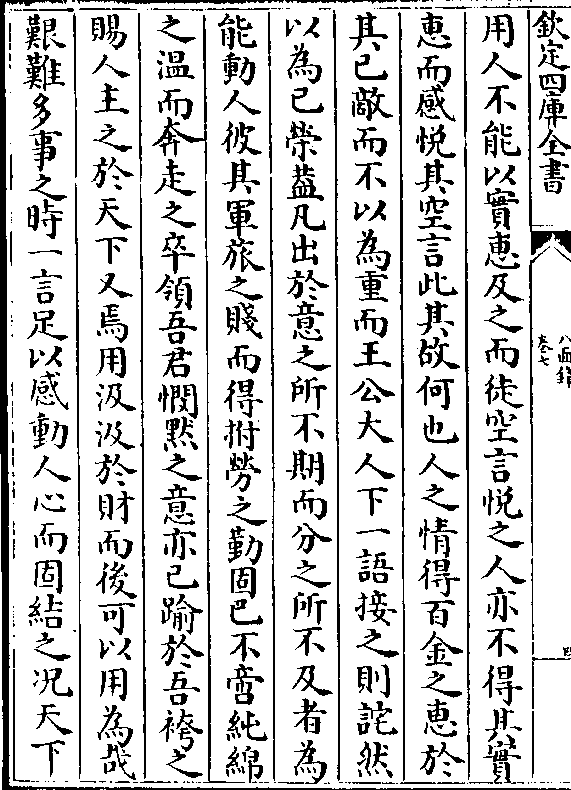 欽定四庫全書
八面鋒
卷七
用人不能以實惠及之而徒空言悅之人亦不得其實
惠而感悅其空言此其故何也人之情得百金之惠於
其已敵而不以為重而王公大人下一語接之則詫然
以為已榮葢凡出於意之所不期而分之所不及者為
能動人彼其軍旅之賤而得拊勞之勤固巴不啻純綿
之溫而奔走之卒領吾君憫默之意亦已踰於吾袴之
賜人主之於天下又焉用汲汲於財而後可以用為哉
艱難多事之時一言足以感動人心而固結之况天下